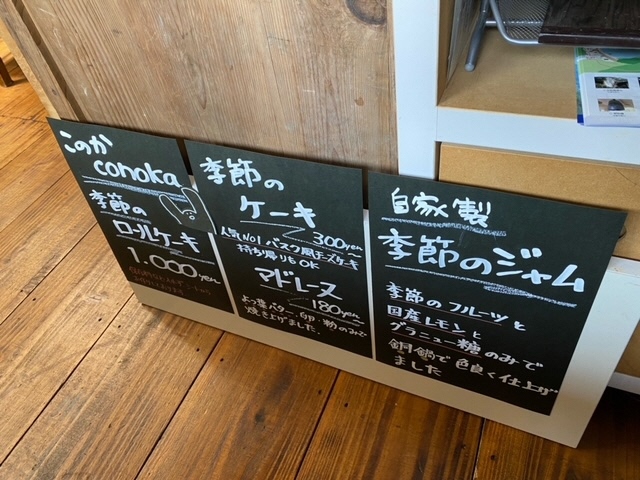 このか
conoka
季節の
ロールケーキ
1.000yen
季節の
ケーキ
300yen~
人気No1 バスク風チーズケーキ
持ち帰りもOK
マドレーヌ
180yen
よつ葉バター・卵・粉のみで
焼き上げました.
自家製
季節のジャム
季節のフルーツと
国産レモンと
グラニュー糖のみで
銅鍋で色良く仕上げ
ました